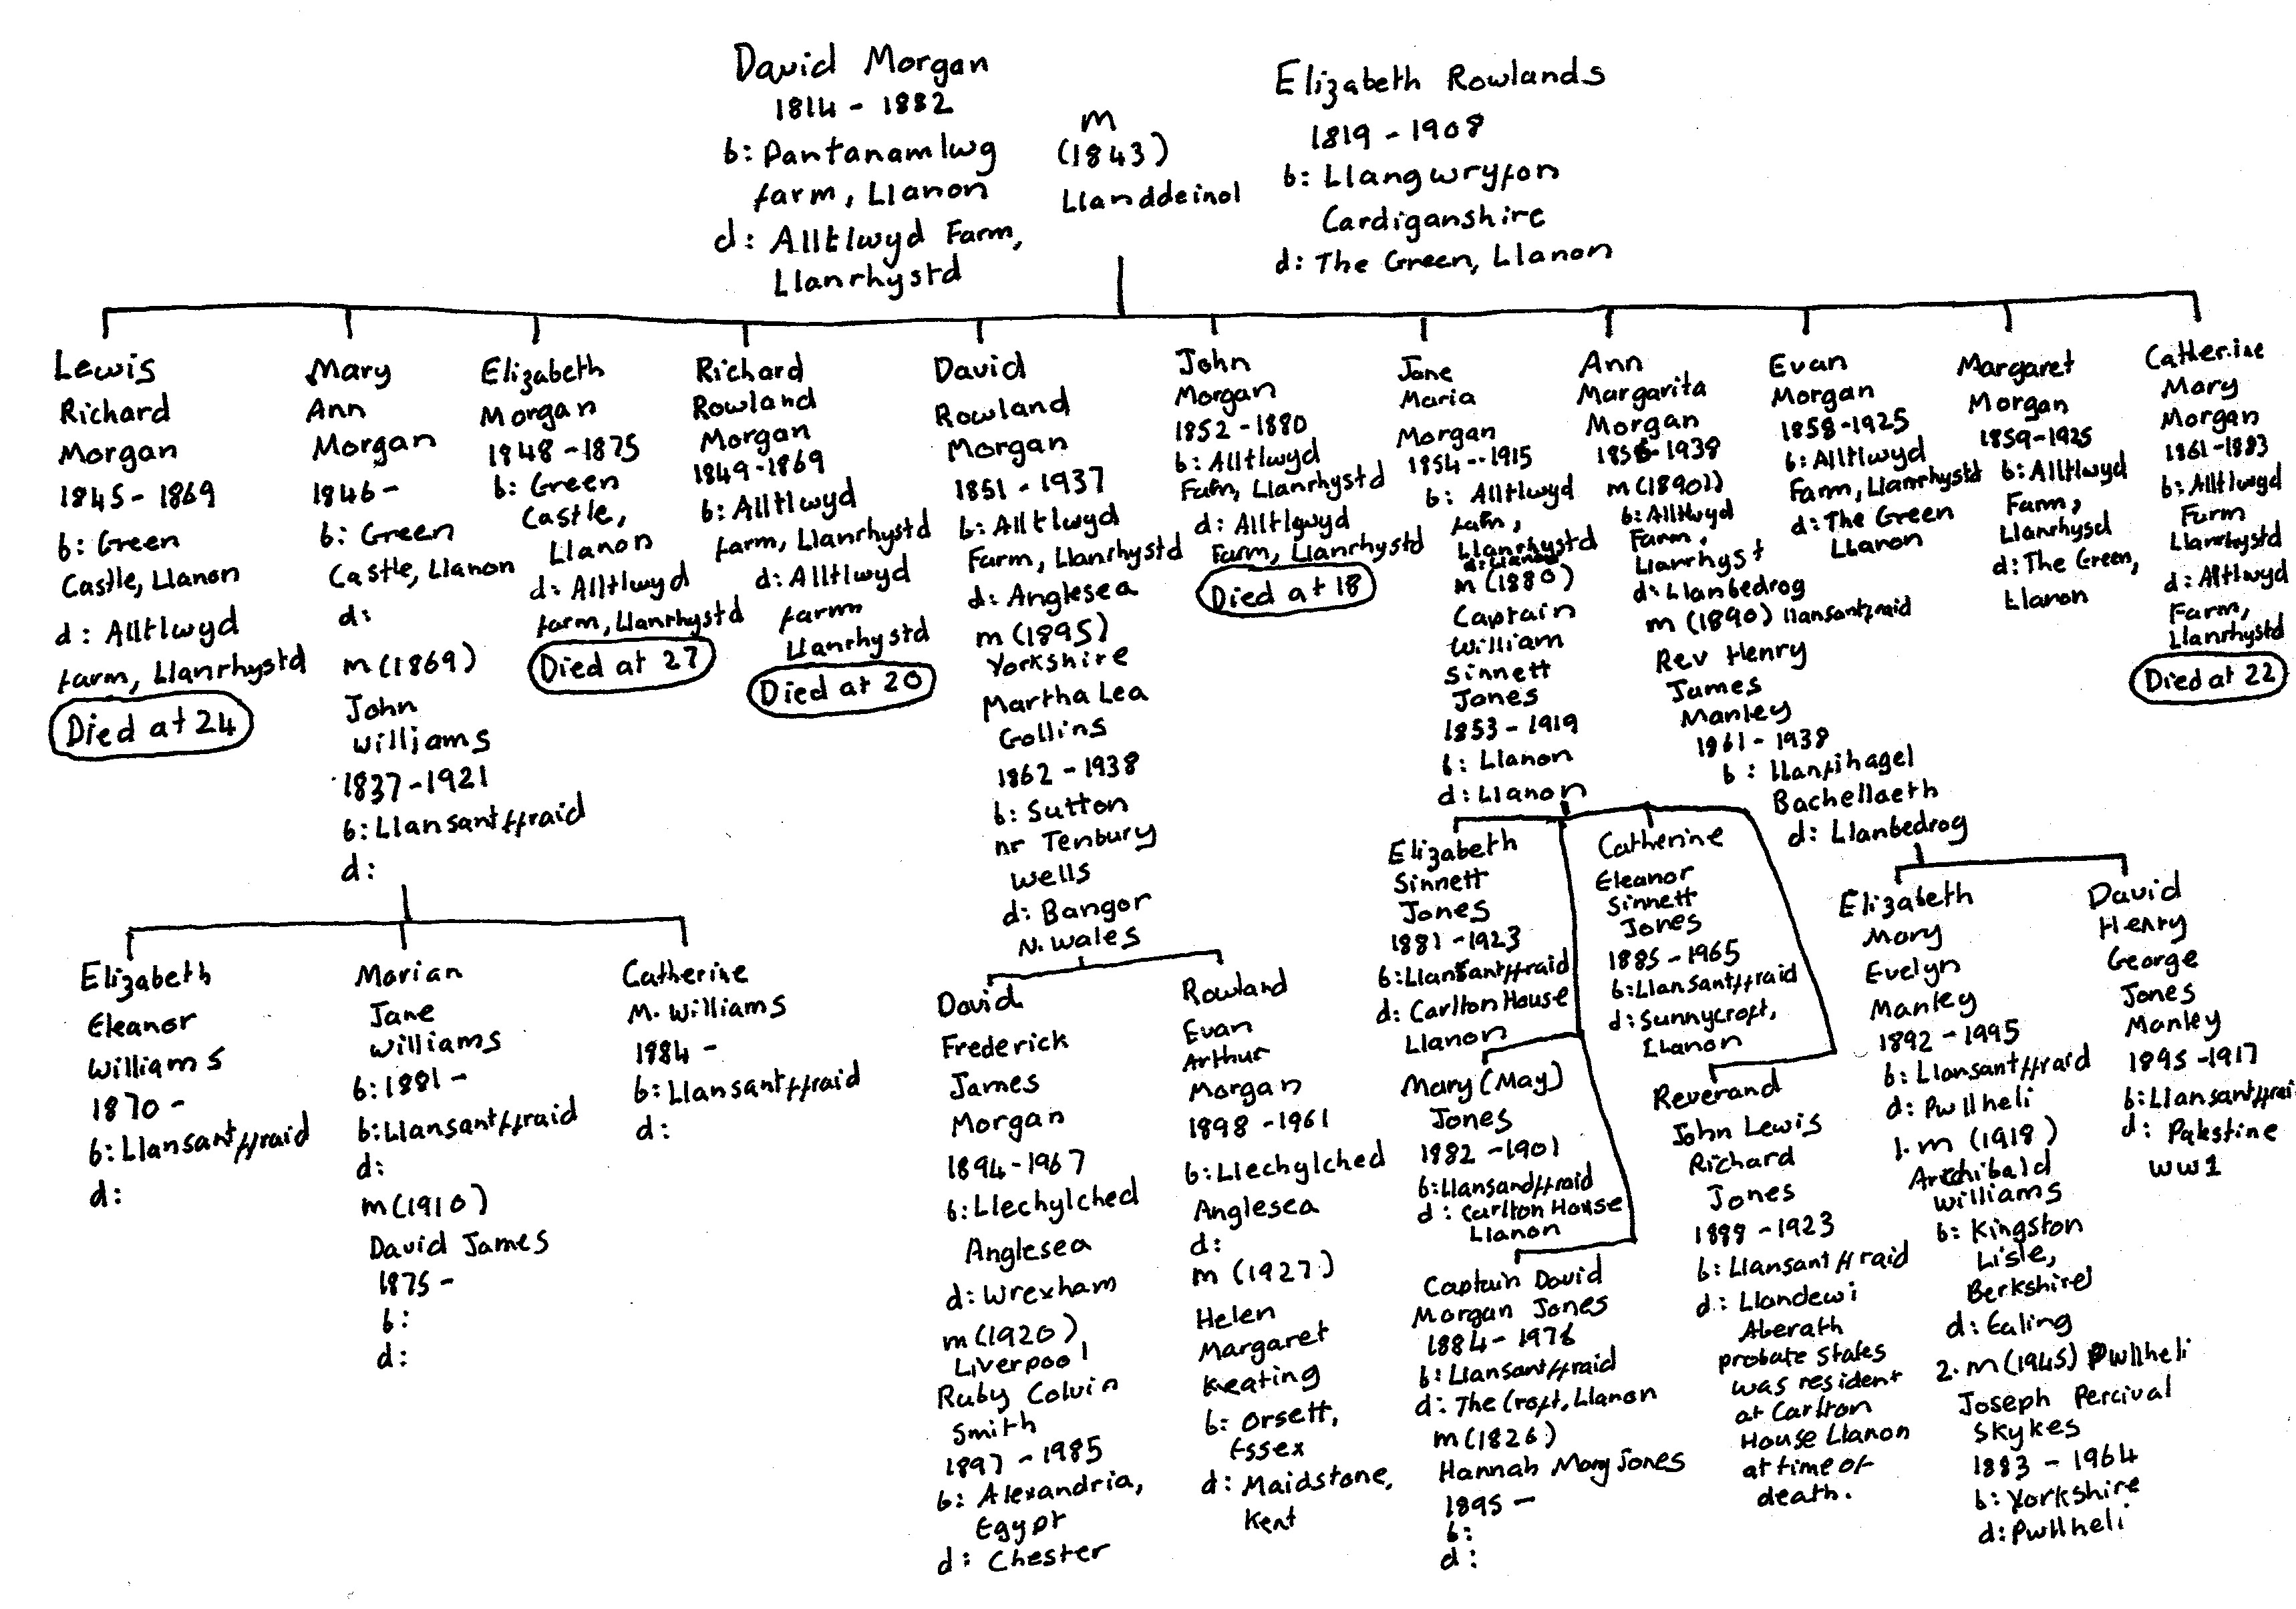 David Morgan
1814 - 1882
b: Pantanamlwg
farm, Llanon
d: Alltlwyd Farm,
Llanrhystd
m
(1843)
Llanddeinol
Elizabeth Rowlands
1819 - 1908
b: Llangwryfon
Cardiganshire
d: The Green, Llanon
Lewis
Richard
Morgan
1845 - 1869
b: Green
Castle, Llanon
d: Alltlwyd
farm, Llanrhystd
Died at 24
Mary
Ann
Morgan
1846 -
b: Green
Castle, Llanon
d:
m (1869)
John
Williams
1837 - 1921
b: Llansantffraid
d:
Elizabeth
Morgan
1848 - 1875
b: Green
Castle,
Llanon
d: Alltlwyd
farm, Llanrhystd
Died at 27
Richard
Rowland
Morgan
1849 - 1869
b: Alltlwyd
farm, Llanrhystd
d: Alltlwyd
farm
Llanrhystd
Died at 20
David
Rowland
Morgan
1851 - 1937
b: Alltlwyd
Farm, Llanrhystd
d: Anglesea
m (1895)
Yorkshire
Martha Lea
Gollins
1862 - 1938
b: Sutton
nr Tenbury
Wells
d: Bangor
N. Wales
John
Morgan
1852 - 1880
b: Alltlwyd
Farm, Llanrhystd
d: Alltlgwyd
Farm, Llanrhystd
Died at 18
Jane
Maria
Morgan
1854 - 1915
b: Alltlwyd
farm,
Llanrhystd
d: Llanon
m (1880)
Captain
William
Sinnett
Jones
1853 - 1919
b: Llanon
d: Llanon
Ann
Margarita
Morgan
1856 - 1938
m (1890)
b: Alltlwyd
Farm,
Llanrhyst
d: Llanbedrog
m (1890) llansantfraid
Rev Henry
James
Manley
1861 - 1938
b: llanfihagel
Bachellaeth
d: Llanbedrog
Evan
Morgan
1858 - 1925
b: Alltlwyd
Farm, Llanrhystd
d: The Green
Llanon
Margaret
Morgan
1859 - 1925
b: Alltlwyd
Farm,
Llanrhysd
d: The Green,
Llanon
Catherine
Mary
Morgan
1861 - 1883
b: Alltlwyd
Farm
Llanrhystd
d: Alltlwyd
Farm,
Llanrhystd
Died at 22
Elizabeth
Eleanor
Williams
1870 -
b: Llansantffraid
d:
Marian
Jane
Williams
b: 1881 -
b: Llansantffraid
d:
m (1910)
David James
1875 -
b:
d:
Catherine
M. Williams
1884 -
b: Llansantffraid
d:
David
Frederick
James
Morgan
1894 - 1967
b: Llechylched
Anglesea
d: Wrexham
m (1920)
Liverpool
Ruby Colvin
Smith
1897 - 1985
b: Alexandria,
Egypt
d: Chester
Rowland
Evan
Arthur
Morgan
1898 - 1961
b: Llechylched
Anglesea
d:
m (1927)
Helen
Margaret
Keating
b: Orsett,
Essex
d: Maidstone,
Kent
Elizabeth
Sinnett
Jones
1881 - 1923
b: Llansantffraid
d: Carlton House
Llanon
Catherine
Eleanor
Sinnett
Jones
1885 - 1965
b: Llansantffraid
d: Sunnycroft,
Llanon
Mary (May)
Jones
1882 - 1901
b: Llansandffraid
d: Carlton House
Llanon
Captain David
Morgan Jones
1884 - 1976
b: Llansantffraid
d: The Croft, Llanon
m (1826)
Hannah Mary Jones
1895 -
b:
d:
Reverand
John Lewis
Richard
Jones
1888 - 1923
b: Llansantffraid
d: Llandewi
Aberath
probate states
was resident
at Carlton
House Llanon
at time of
death.
Elizabeth
Mary
Evelyn
Manley
1892 - 1995
b: Llansantffraid
d: Pwllheli
1. m (1918)
Archibald
Williams
b: Kingston
Lisle,
Berkshire
d: Ealing
2. m (1945) Pwllheli
Joseph Percival
Skykes
1883 - 1964
b: Yorkshire
d: Pwllheli
David
Henry
George
Jones
Manley
1895 - 1917
b: Llansantffrai
d: Palestine
WW1